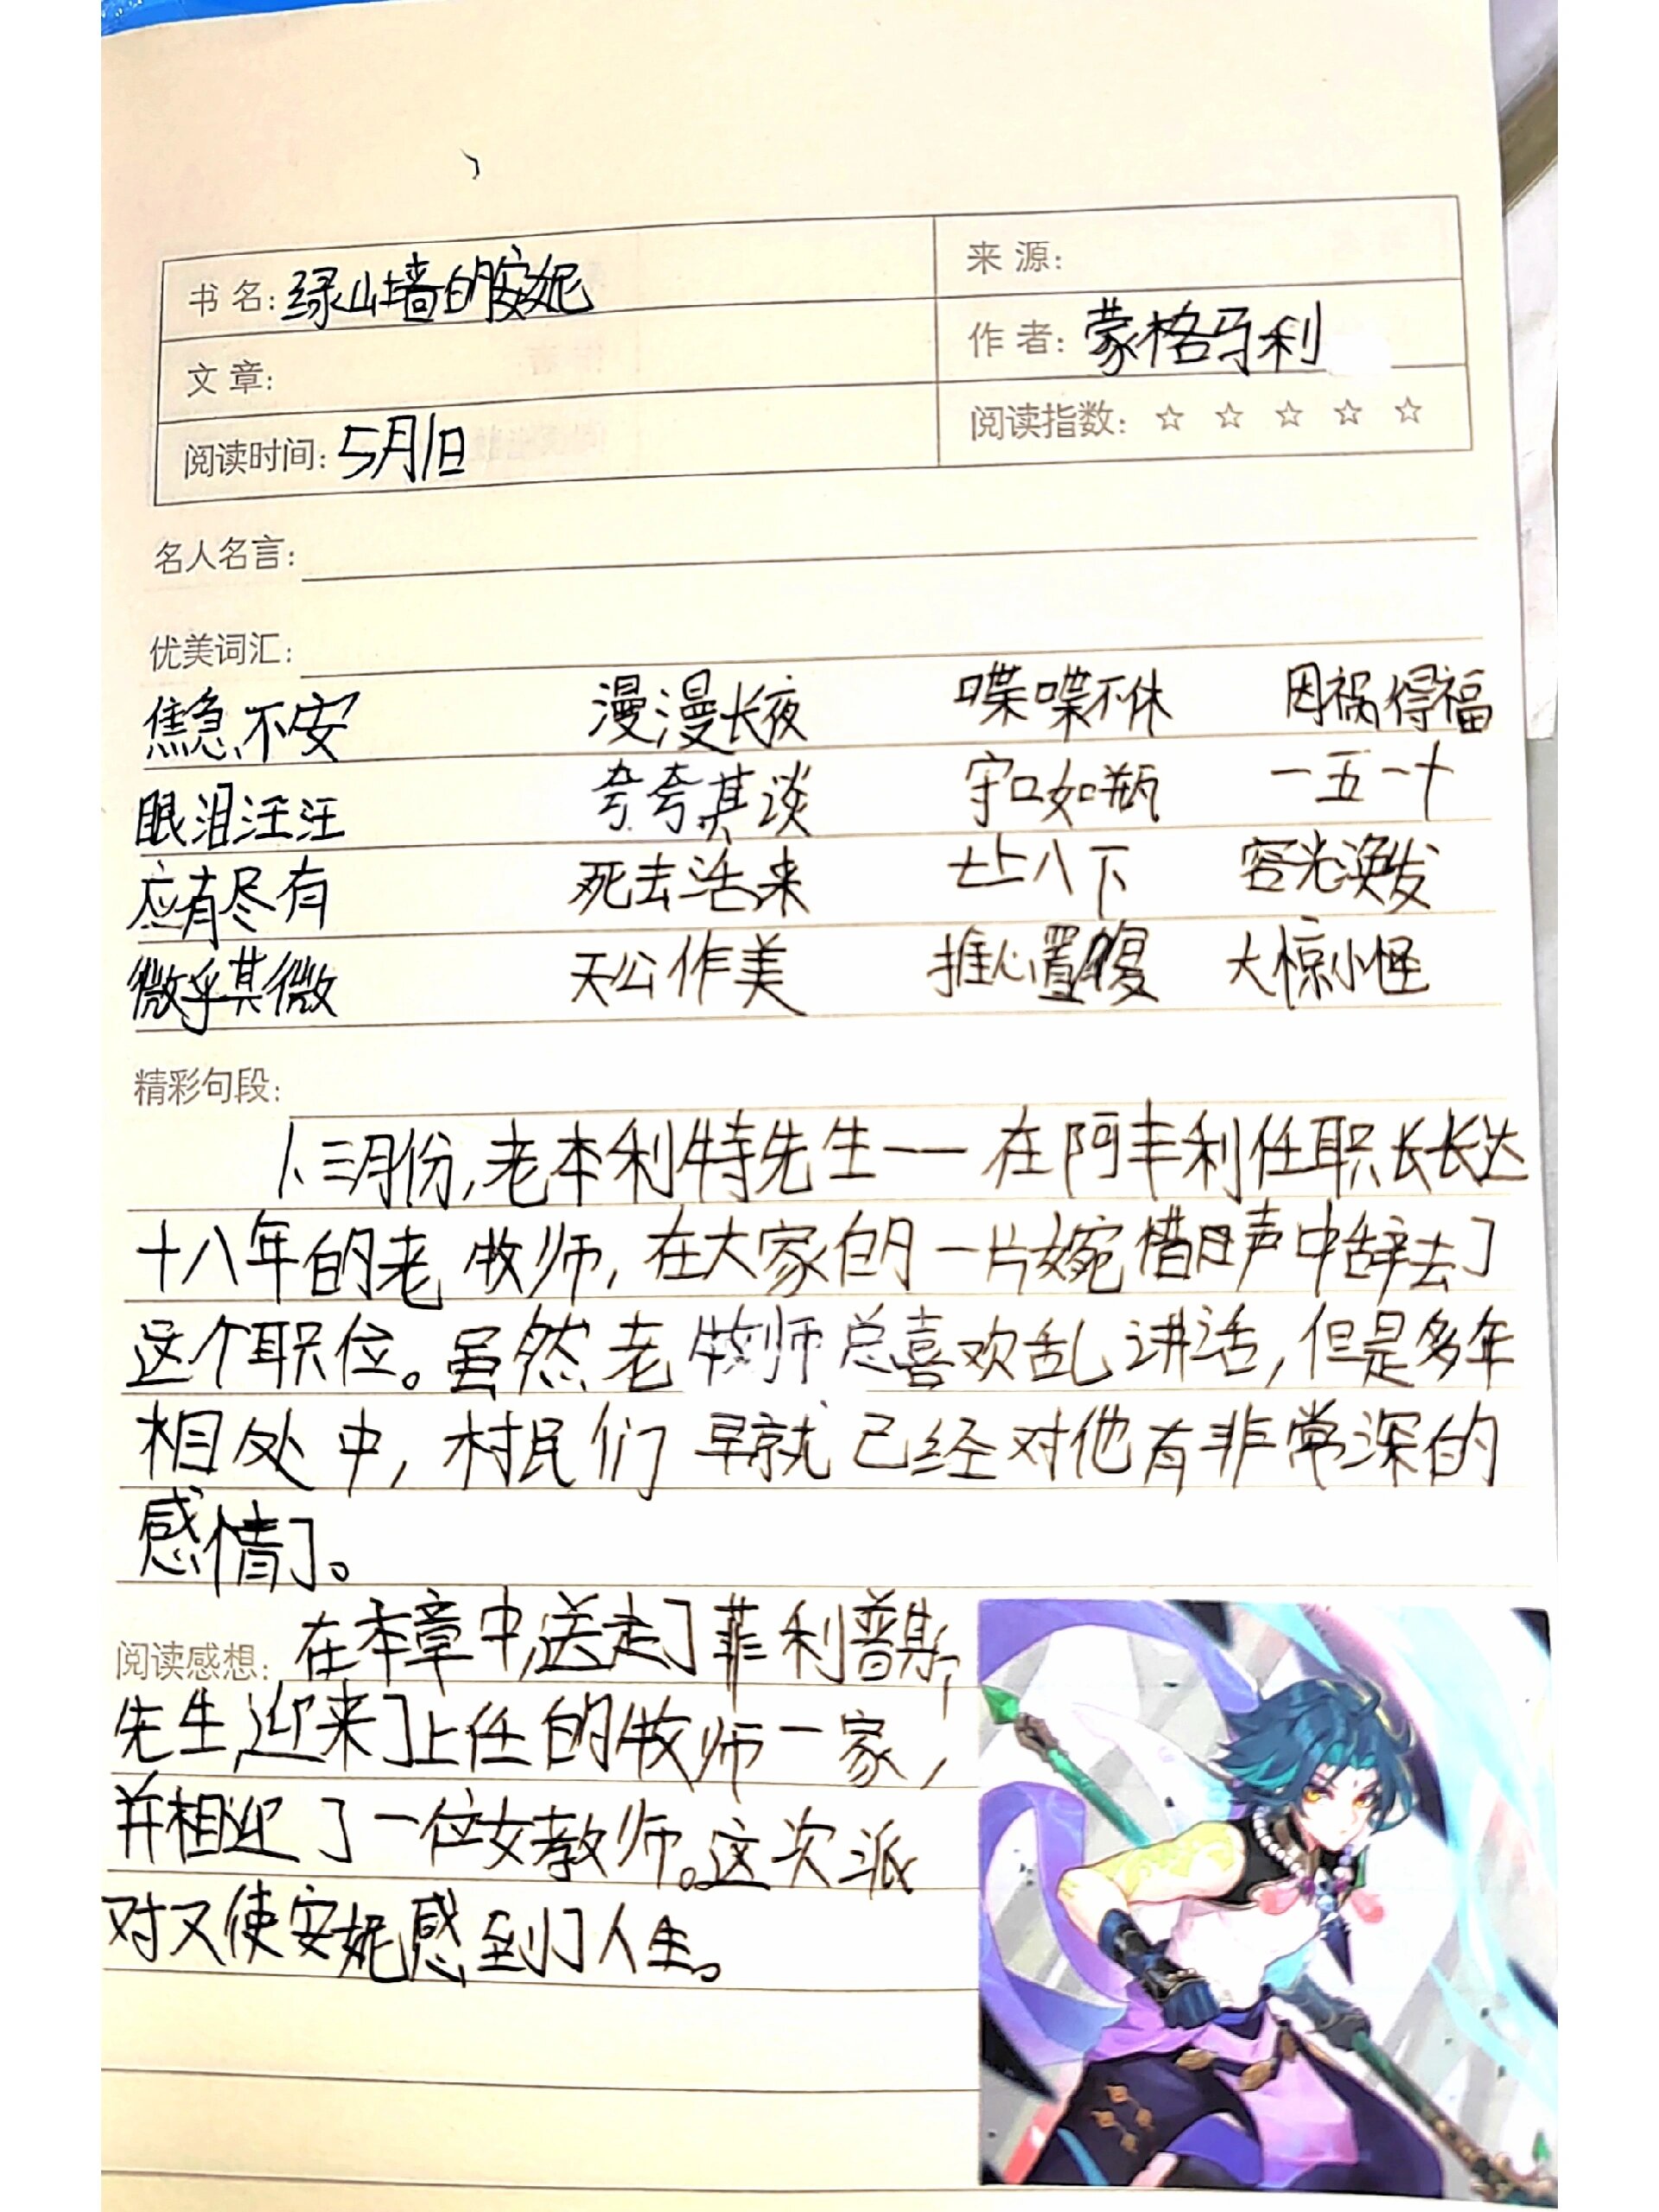 书名：绿山墙的安妮
来源：
作者：蒙格马利
文章：
阅读时间：5月1日
阅读指数：☆ ☆ ☆ ☆ ☆
名人名言：
优美词汇：
焦急不安 漫漫长夜 喋喋不休 因祸得福
眼泪汪汪 夸夸其谈 守口如瓶 一五一十
应有尽有 死去活来 七上八下 容光涣发
微乎其微 天公作美 推心置腹 大惊小怪
精彩句段：
1、三月份，老本利特先生——在阿丰利任职长长达
十八年的老牧师，在大家的一片婉惜声中辞去了
这个职位。虽然老牧师总喜欢乱讲话，但是多年
相处中，村民们早就已经对他有非常深的
感情了。
阅读感想：在本章中，送走了菲利普斯，
先生，迎来了上任的牧师一家，
并相迎了一位女教师。这次派
对又使安妮感到了人生。